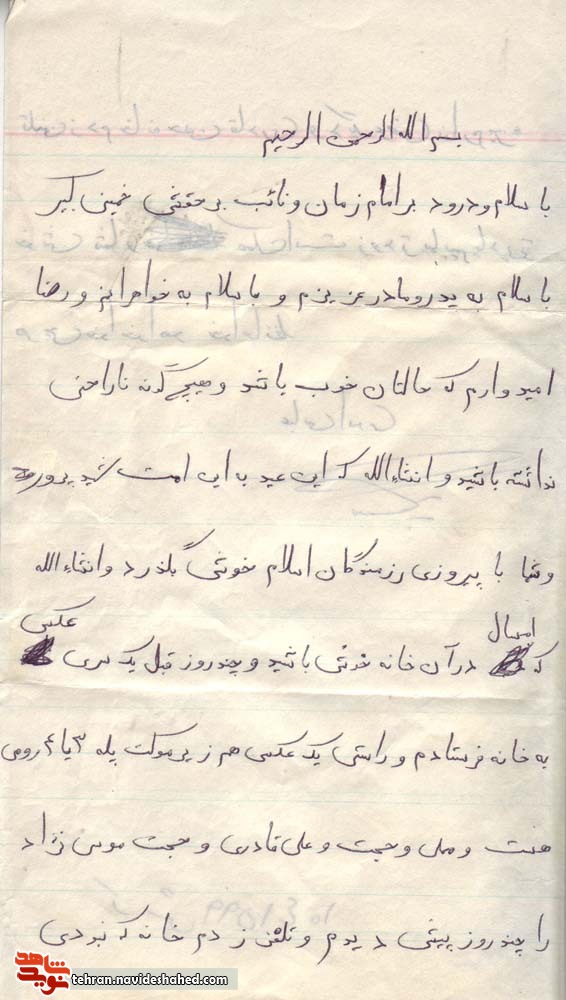 بسم الله الرحمن الرحیم
با سلام و درود بر امام زمان و نائب بر حقش خمینی کبیر
با سلام به پدر و مادر عزیزم و با سلام به خواهرانم و رضا
امیدوارم که حالتان خوب باشد و هیچ گونه ناراحتی
نداشته باشید و انشاءالله که این عید به این امت شهید پرور
و شما با پیروزی رزمندگان اسلام خوشی بگذرد و انشاءالله
که امسال در آن خانه خوش باشید و چند روز قبل یک سری عکس
به خانه فرستادم و راستی یک عکس هم زیر موکت پله ۳ یا ۴ رومی
هست و علی و حجت و علی قادری و حجت موسی نژاد
را چند روز پیش دیدم و تلفن زدم خانه که نبودی
شاهد
نوید
tehran.navideshahed.com